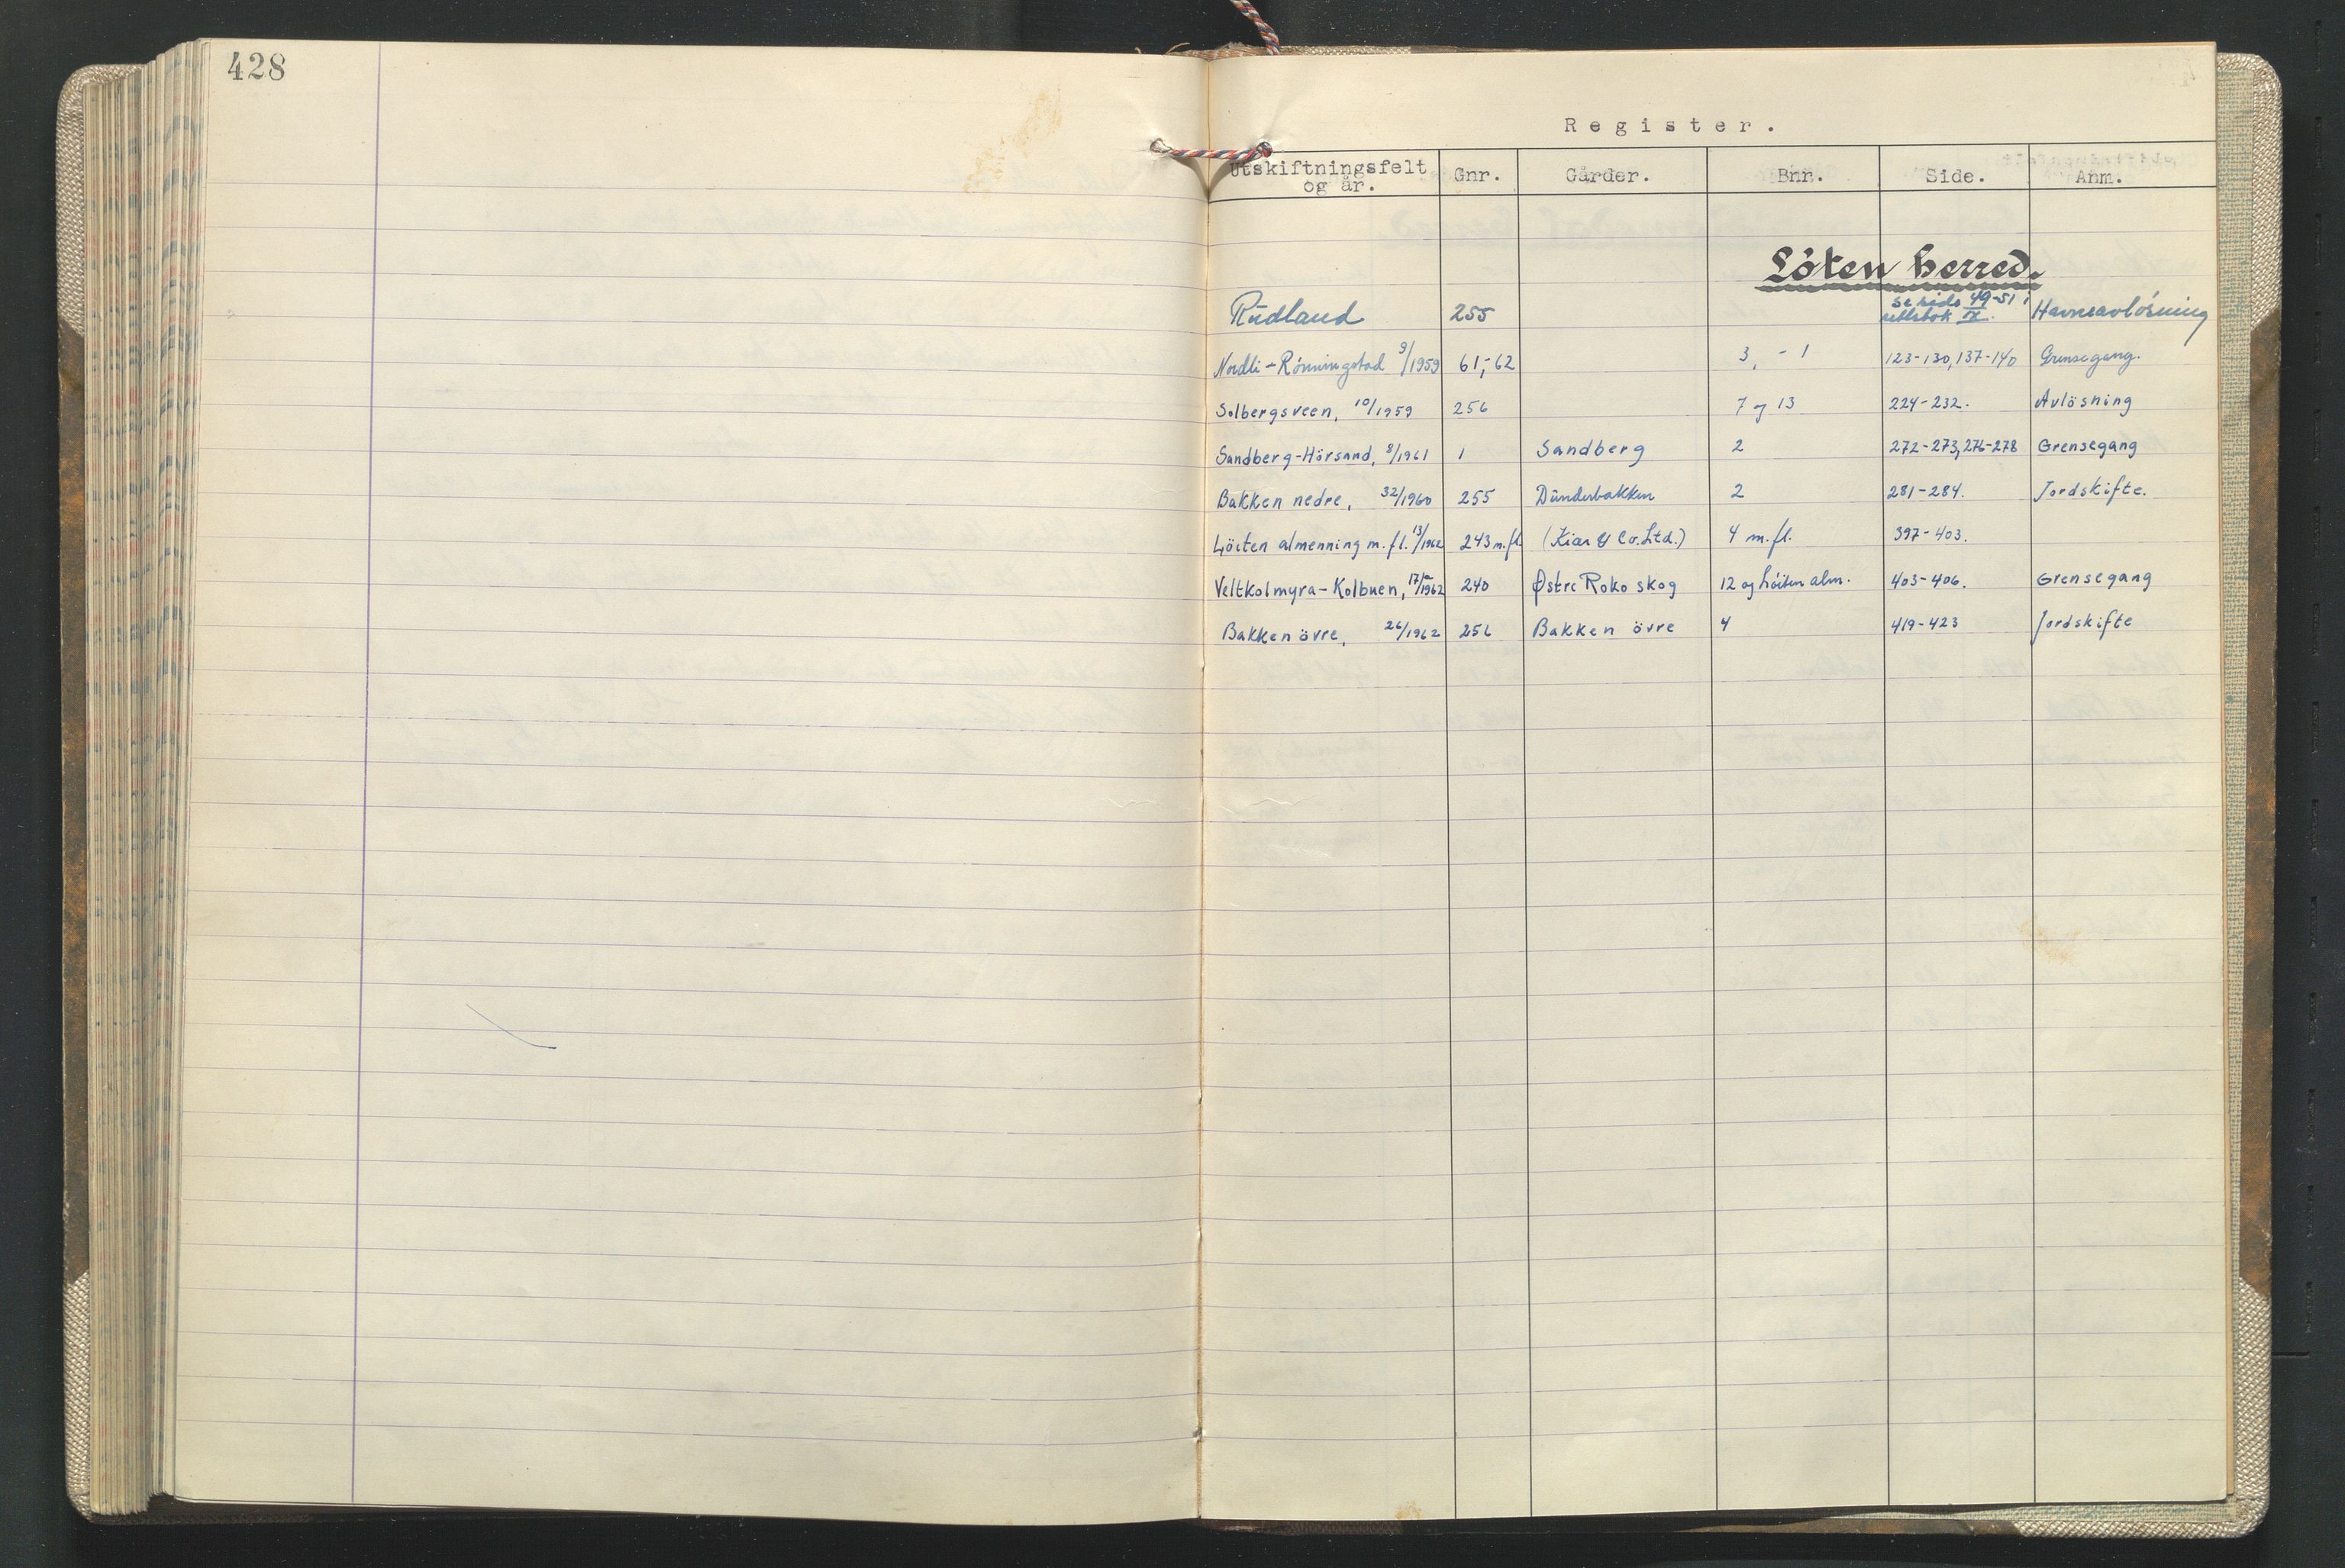 428
Register.
Utskiftningsfelt og år. Gnr. Gårder. Bnr. Side. Anm.
Löten herred.
Rudland 255 se side 49-51 i rettsbok IX. Havneavlösning
Nordli-Rönningstad 9/1959 61,-62 3, - 1 123-130, 137-140 Grensegang.
Solbergsveen, 10/1959 256 7 og 13 224-232. Avlösning
Sandberg-Hörsand, 8/1961 1 Sandberg 2 272-273, 276-278 Grensegang
Bakken nedre, 32/1960 255 Dunderbakken 2 281-284. Jordskifte.
Löiten almenning m.fl. 13/1962 243 m.fl. (Kiær & Co. Ltd.) 4 m.fl. 397-403.
Veltkolmyra-Kolbuen, 17/1962 240 Østre Roko skog 12 og Löiten alm. 403-406. Grensegang
Bakken övre, 26/1962 256 Bakken övre 4 419-423 Jordskifte